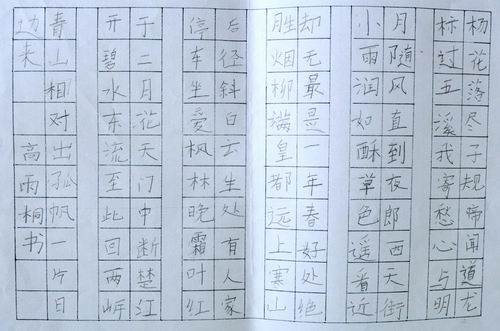 杨花落尽子规啼闻道龙
标过五溪我寄愁心与明
月随风直到夜郎西天街
小雨润如酥草色遥看近
却无最是一年春好处绝
胜烟柳满皇都远上寒山
后径斜白云生处有人家
停车坐爱枫林晚霜叶红
于二月花天门中断楚江
开碧水东流至此回两岸
青山相对出孤帆一片日
边来 高雨桐书